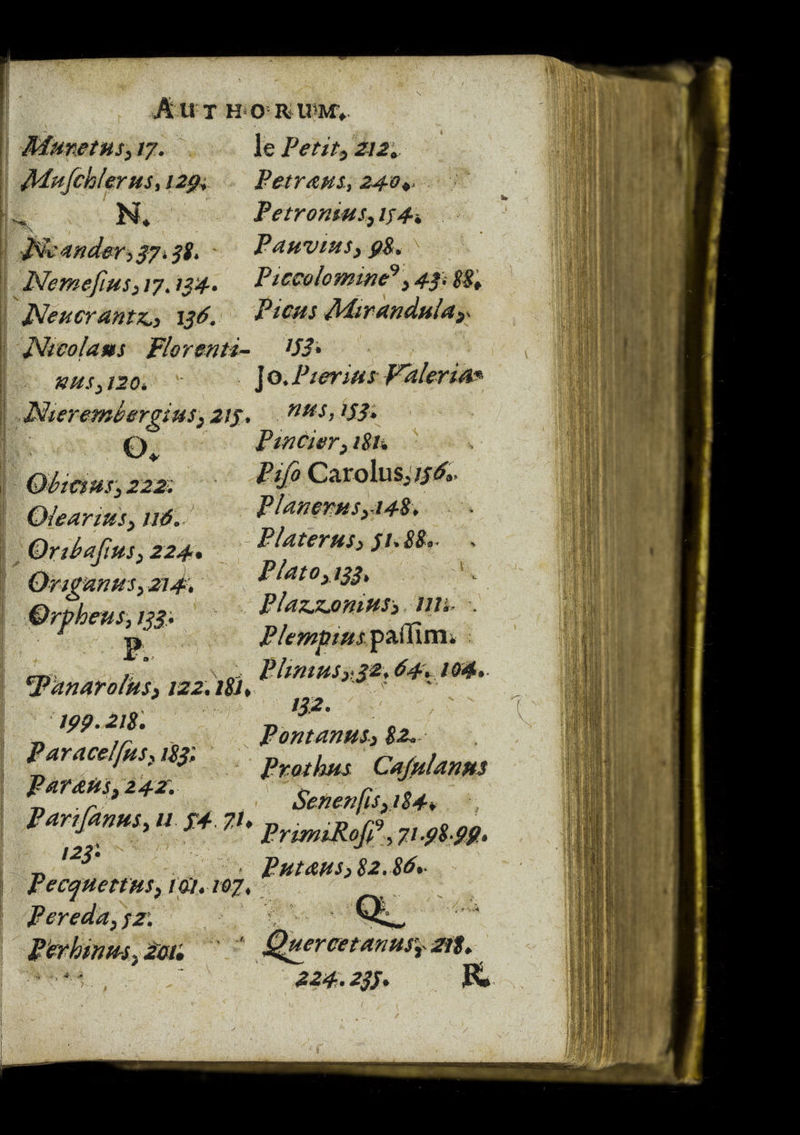 AUTHORUM.
Muretus, 17.
Muſchlerus, 129.
N.
Neander, 37. 38.
Nemeſius, 17. 134.
Neucrantz, 136.
Nicolaus Florenti-
nus, 120.
Nierembergius, 215.
O.
Obicius, 222.
Olearius, 116.
Oribaſius, 224.
Origanus, 214.
Orpheus, 133.
P.
Panarolus, 122. 181.
199. 218.
Paracelſus, 183.
Paræus, 242.
Pariſanus, 11 54. 71.
123.
Pecquettus, 101. 107.
Pereda, 52.
Perhinus, 201.
le Petit, 212.
Petræus, 240.
Petronius, 154.
Pauvius, 98.
Piccolomineꝰ, 43. 88.
Picus Mirandula,
153.
Jo. Pierius Valeria-
nus, 153.
Pincier, 181.
Piſo Carolus, 156.
Planerus, 148.
Platerus, 51. 88.
Plato, 133.
Plazzonius, 111.
Plempius paſſim.
Plinius, 32. 64. 104.
132.
Pontanus, 82.
Prothus Caſulanus
Senenſis, 184.
PrimiRoſiꝰ, 71. 98. 99.
Putæus, 82. 86.
Q.
Quercetanus, 218.
224. 235.
R.